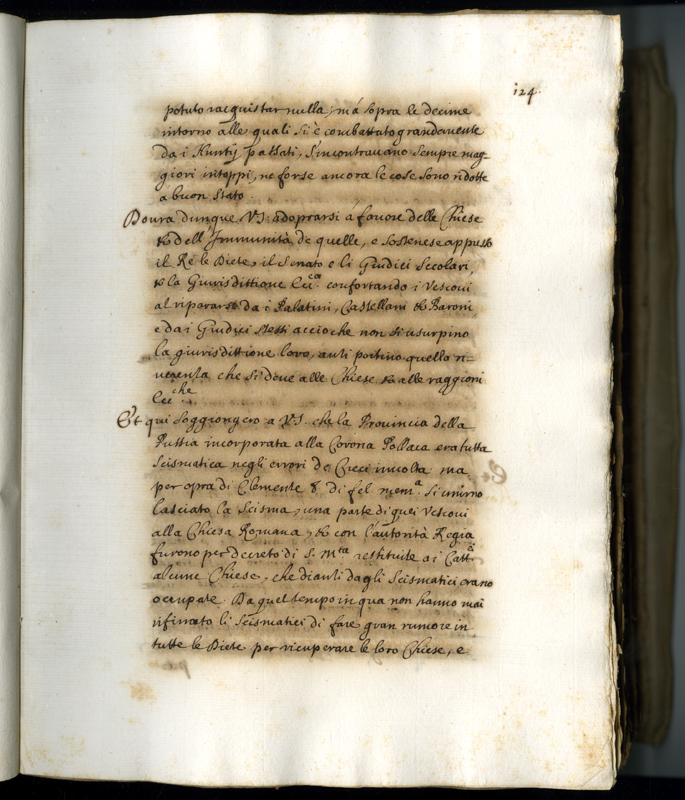 124.
potuto racquistar nulla, mà sopra le decime
intorno alle quali si è combattuto grandemente
da i Nuntij passati, s'incontravano sempre mag-
giori intoppi, ne forse ancora le cose sono ridotte
a buon stato.
Dovrà dunque V.S. adoprarsi à favore delle Chiese
& dell'Immunità de quelle, e sostenere appresso
il Re le Diete, il Senato e li Giudici secolari,
& la Giurisdittione Ecc.ca confortando i Vescovi
al ripararsi da i Palatini, Castellani & Baroni
e da i Giudici stessi acciòche non si usurpino
la giurisdittione loro, anzi portino quella ri=
verenza che si deve alle Chiese & alle raggioni
Ecc.che
Et qui soggiongerò a V.S. che la Provincia della
Russia incorporata alla Corona Pollaca era tutta
Scismatica negli errori de Greci involta ma
per opra di Clemente 8. di fel. mem.a si unirno
lasciato la scisma, una parte di quei Vescovi
alla Chiesa Romana, & con l'autorità Regia
furono per decreto di S. M.tà restituite ai Catt.ci
alcune Chiese, che dianzi dagli Scismatici erano
occupate. Da quel tempo in qua non hanno mai
rifinato li Scismatici di fare gran rumore in
tutte le Diete per ricuperare le loro Chiese, e